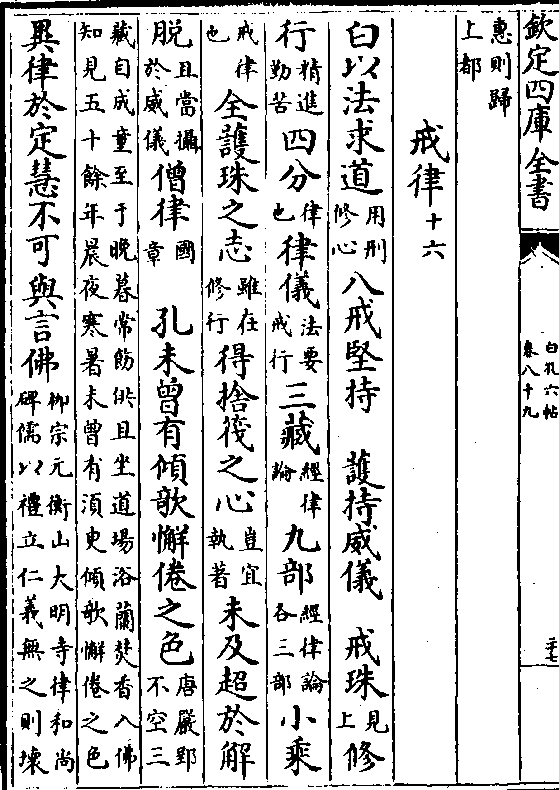 欽定四庫全書
白孔六帖
卷八十九
二十七
惠則歸
上都
戒律十六
白以法求道用刑修心八戒堅持 護持威儀 戒珠見上修
行精進勤苦四分律也律儀法要戒行三藏經律論九部經律論各三部小乘
戒律也全護珠之志雖在修行得捨筏之心豈宜執著未及超於解
脱且當攝於威儀僧律國章 孔未曾有傾欹懈倦之色唐嚴郢不空三
藏自成童至于晚暮常飭供具坐道場浴蘭焚香入佛
知見五十餘年晨夜寒暑未曾有須臾傾欹懈倦之色
異律於定慧不可與言佛柳宗元衡山大明寺律和尚
碑儒以禮立仁義無之則壊